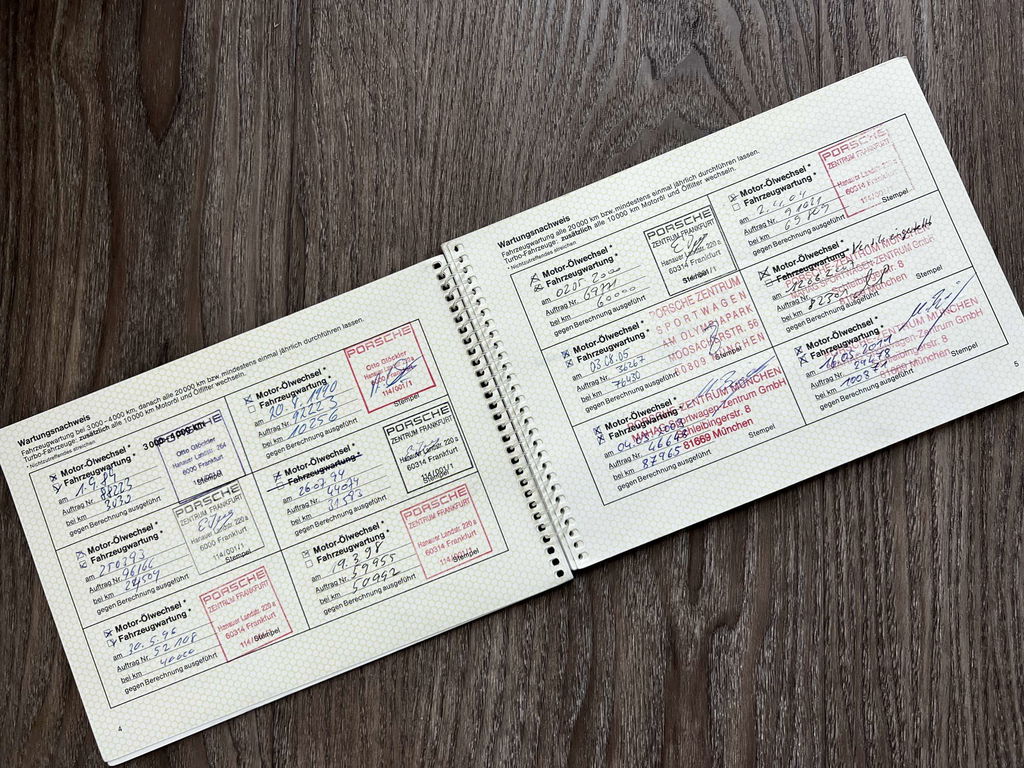 Wartungsnachweis
Fahrzeugwartung bei 3 000 - 4 000 km, danach alle 20 000 km bzw. mindestens einmal jährlich durchführen lassen.
Turbo-Fahrzeuge: zusätzlich alle 10 000 km Motoröl und Ölfilter wechseln.
* Nichtzutreffendes streichen
Motor-Ölwechsel *
Fahrzeugwartung *
am 1.9.89
Auftrag Nr. 88223
bei km
gegen Berechnung ausgeführt
PORSCHE
Otto Glöckler
Hanauer Landstr.
6000 Frankfurt
Stempel
Motor-Ölwechsel *
Fahrzeugwartung *
am 250393
Auftrag Nr. 96166
bei km 24504
gegen Berechnung ausgeführt
PORSCHE
ZENTRUM FRANKFURT
Hanauer Landstr. 220 a
6000 Frankfurt
114/001/1
Stempel
Motor-Ölwechsel *
Fahrzeugwartung *
am 30.5.96
Auftrag Nr. 52108
bei km 40000
gegen Berechnung ausgeführt
PORSCHE
ZENTRUM FRANKFURT
Hanauer Landstr. 220 a
60314 Frankfurt
114/001/1
Stempel
4
Motor-Ölwechsel *
Fahrzeugwartung *
am 20.8.1990
Auftrag Nr. 92223
bei km 10256
gegen Berechnung ausgeführt
PORSCHE
Otto Glöckler
Hanauer Landstr.
114/001/1
Stempel
Motor-Ölwechsel *
Fahrzeugwartung *
am 26.07.94
Auftrag Nr. 44014
bei km 31593
gegen Berechnung ausgeführt
PORSCHE
ZENTRUM FRANKFURT
Hanauer Landstr. 220 a
60314 Frankfurt
114/001/1
Stempel
Motor-Ölwechsel *
Fahrzeugwartung *
am 19.3.98
Auftrag Nr. 59955
bei km 50992
gegen Berechnung ausgeführt
PORSCHE
ZENTRUM FRANKFURT
Hanauer Landstr. 220 a
60314 Frankfurt
114/001/1
Stempel
Wartungsnachweis
Fahrzeugwartung alle 20 000 km bzw. mindestens einmal jährlich durchführen lassen.
Turbo-Fahrzeuge: zusätzlich alle 10 000 km Motoröl und Ölfilter wechseln.
* Nichtzutreffendes streichen
Motor-Ölwechsel *
Fahrzeugwartung *
am 0205 2000
Auftrag Nr.
bei km 60000
gegen Berechnung ausgeführt
PORSCHE
ZENTRUM FRANKFURT
Hanauer Landstr. 220 a
60314 Frankfurt
114/001/1
Stempel
Motor-Ölwechsel *
Fahrzeugwartung *
am 03.08.05
Auftrag Nr. 36267
bei km 76430
gegen Berechnung ausgeführt
PORSCHE ZENTRUM
SPORTWAGEN
AM OLYMPIAPARK
MOOSACHERSTR. 56
80809 MÜNCHEN
Stempel
Motor-Ölwechsel *
Fahrzeugwartung *
am 04.08.2008
Auftrag Nr. 46648
bei km 87965
gegen Berechnung ausgeführt
PORSCHE ZENTRUM MÜNCHEN
MAHAG Sportwagen Zentrum GmbH
Schleibingerstr. 8
81669 München
Motor-Ölwechsel *
Fahrzeugwartung *
am 2.4.04
Auftrag Nr. 91021
bei km 69109
gegen Berechnung ausgeführt
PORSCHE
ZENTRUM FRANKFURT
Hanauer Landstr. 220 a
60314 Frankfurt
114/001/1
Stempel
Motor-Ölwechsel *
Fahrzeugwartung *
Ventile eingestellt
bei km 82301
gegen Berechnung ausgeführt
Stempel
Motor-Ölwechsel *
Fahrzeugwartung *
am 16.05.2011
Auftrag Nr. 24678
bei km 100874
gegen Berechnung ausgeführt
PORSCHE ZENTRUM MÜNCHEN
MAHAG Sportwagen Zentrum GmbH
Schleibingerstr. 8
81669 München
Stempel
5